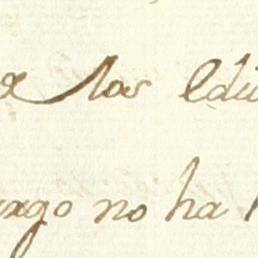 los Edi
argo no ha